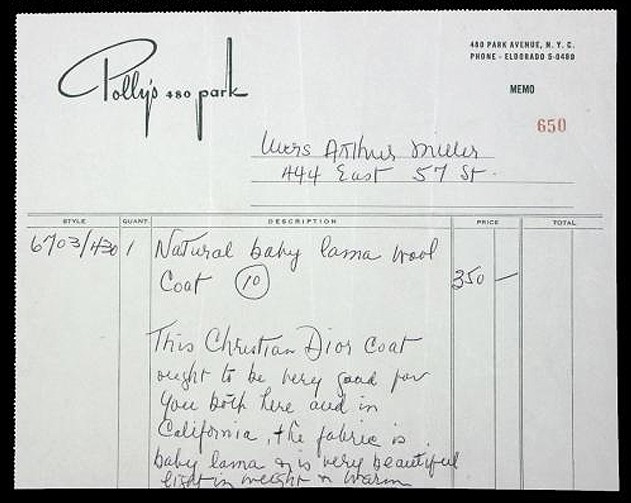 Polly's 480 park
480 PARK AVENUE, N. Y. C.
PHONE - ELDORADO 5-0480
MEMO
650
Mrs Arthur Miller
444 East 57 St.
STYLE QUANT. DESCRIPTION PRICE TOTAL
6703/430 1 Natural baby lama wool
Coat (10) 350 —
This Christian Dior Coat
ought to be very good for
you both here and in
California, the fabric is
baby lama & is very beautiful
light in weight & warm